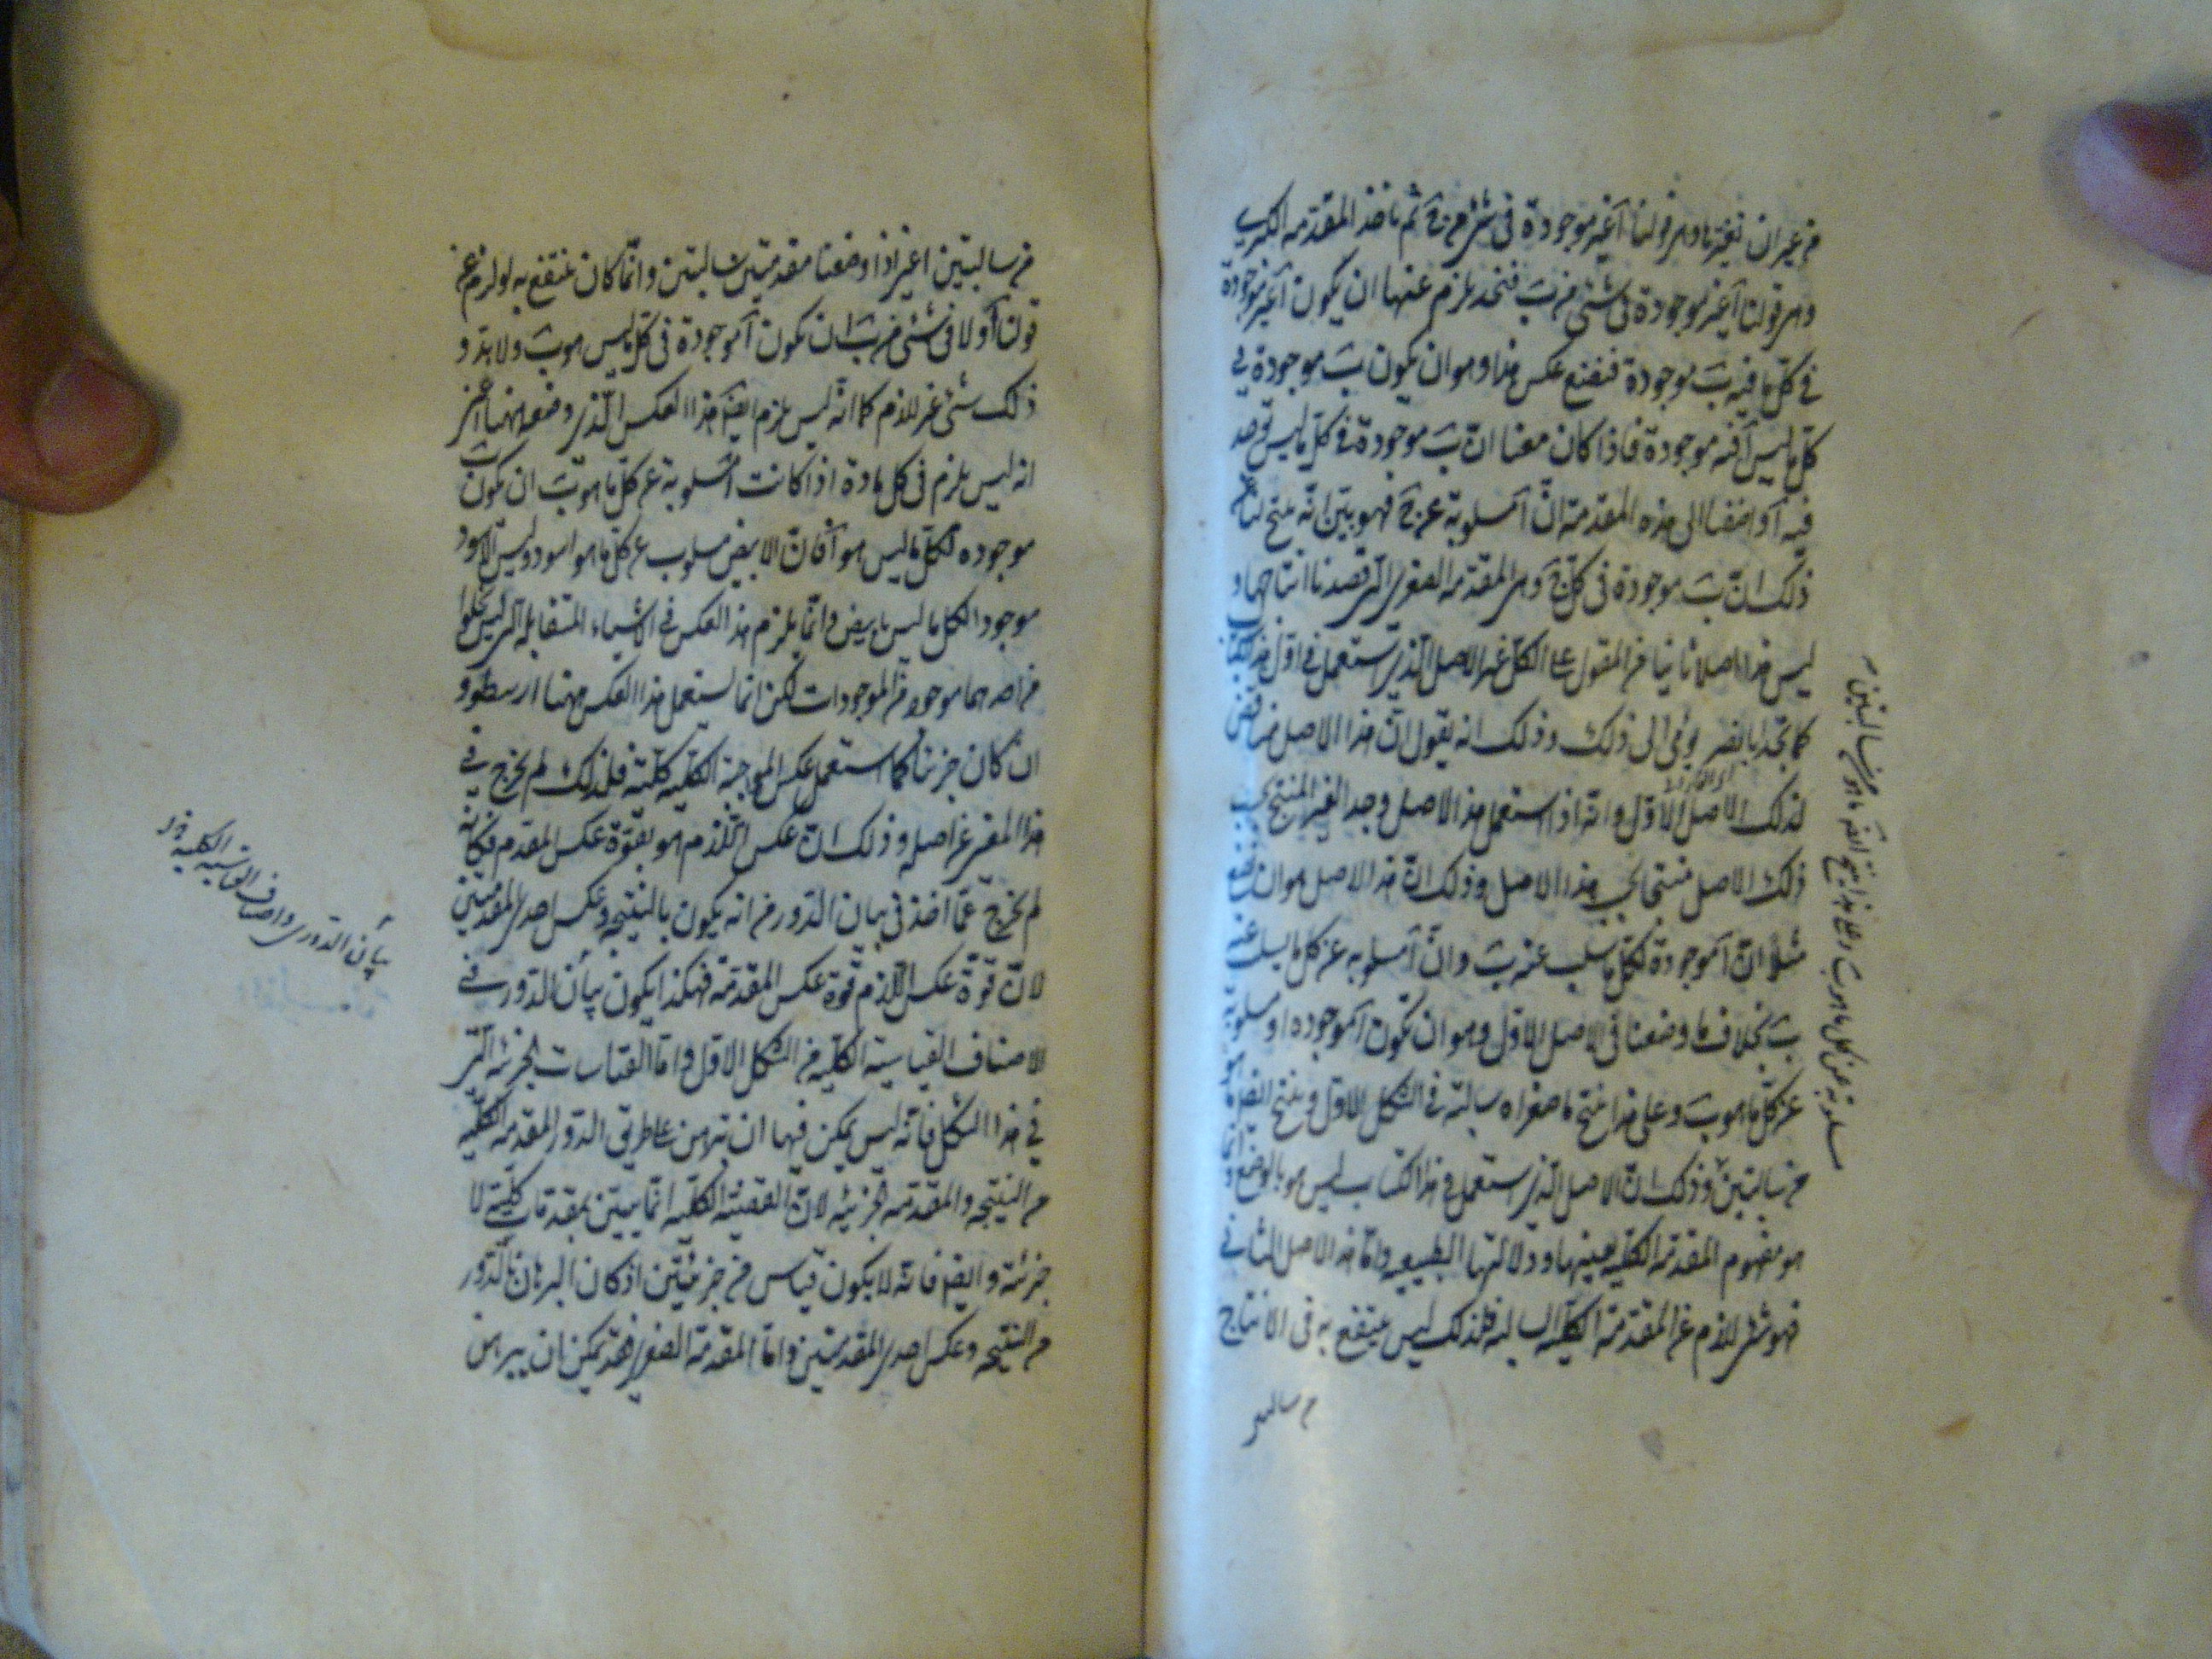 من غير ان نغيرها وهى قولنا آ غير موجودة فى شئ من ج ثم ناخذ المقدمه الكبرى
وهى قولنا آ غير موجودة فى شئ من ب فنجد يلزم عنها ان يكون آ غير موجودة
فى كل ما فيه ب موجودة فنضع عكس هذا وهو ان يكون ب موجودة فى
كل ما ليس آ فيه موجودة فاذا كان معنا ان ب موجودة فى كل ما ليس توجد
فيه آ واضفنا الى هذه المقدمة ان آ مسلوبة عن ج فهو بين انه ينتج لنا
ذلك ان ب موجودة فى كل ج وهى المقدمه الصغرى التى قصدنا انتاجها و
ليس هذا اصلا ثانيا فى المقول على الكل غير الاصل الذى استعمل فى اول هذا
كما نجد ابا نصر يومى الى ذلك وذلك انه يقول ان هذا الاصل مناقض
لذلك الاصل الاول وانه اذا استعمل هذا الاصل وجد الغير المنتج
ذلك الاصل منتجا بحسب هذا الاصل وذلك ان هذا الاصل هو ان
مثلا ان آ موجودة لكل ما سلب عنه ب وان آ مسلوبه عن كل ما يسلب عنه
ب بخلاف ما وضعنا فى الاصل الاول وهو ان تكون آ موجوده او مسلوبه
عن كل ما هو ب وعلى هذا ينتج ما صغراه سالبة فى الشكل الاول وينتج ايضا ما
من سالبتين وذلك ان الاصل الذى استعمل فى هذا الكتاب ليس هو بالوضع و
هو مفهوم المقدمة الكلية بعينها ودلالتها الطبيعيه واما هذا الاصل الثانى
فهو شئ لازم عن المقدمة الكليه السالبة فلذلك ليس ينتفع به فى الانتاج
من سالبتين
مسلوبة عن كل ما هو ب وعلى هذا ينتج ايضا ما هو من سالبتين
من سالبتين اعنى اذا وضعنا مقدمتين سالبتين وانما كان ينتفع به لو لزم عن
قولنا آ ولا فى شئ من ب ان تكون آ موجودة فى كل ما ليس هو ب ولا بد و
ذلك شئ غير لازم كما انه ليس يلزم ايضا هذا العكس الذى وضع ههنا اعنى
انه ليس يلزم فى كل مادة اذا كانت آ مسلوبة عن كل ما هو ب ان تكون ب
موجوده لكل ما ليس هو آ فان الابيض مسلوب عن كل ما هو اسود وليس الاسود
موجودا لكل ما ليس بابيض وانما يلزم هذا العكس فى الاشياء المتقابله التى ليس يخلوا
من احدهما موجود من الموجودات لكن انما استعمل هذا العكس ههنا ارسطو و
ان كان جزئيا كما استعمل عكس الموجبة الكليه كلية فلذلك لم يخرج فى
هذا المعنى عن اصله وذلك ان عكس اللازم هو بقوة عكس المقدم فكانه
لم يخرج عما اخذ فى بيان الدور من انه يكون بالنتيجه وعكس احدى المقدمتين
لان قوة عكس اللازم قوة عكس المقدمة فهكذا يكون بيان الدور فى
الاصناف القياسية الكليه من الشكل الاول واما القياسات الجزئية التى
فى هذا الشكل فانه ليس يمكن فيها ان تبرهن على طريق الدور المقدمه الكلية
من النتيجه والمقدمه الجزئيه لان القضية الكليه انما تبين بمقدمات كلية لا
جزئية وايضا فانه لا يكون قياس من جزئيتين اذ كان البرهان بالدور
من النتيجه وعكس احدى المقدمتين واما المقدمة الصغرى فقد يمكن ان يبرهن
بيان الدورى واصناف القياسيه الكليه